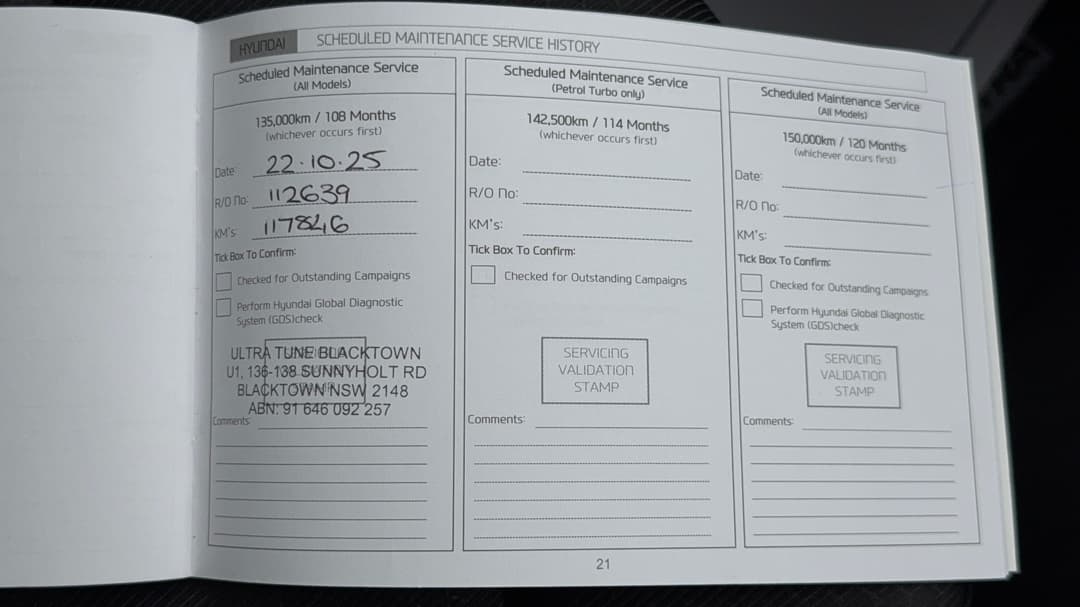 HYUNDAI
SCHEDULED MAINTENANCE SERVICE HISTORY
Scheduled Maintenance Service
(All Models)
135,000km / 108 Months
(whichever occurs first)
Date: 22.10.25
R/O No: 112639
KM's: 117846
Tick Box To Confirm:
Checked for Outstanding Campaigns
Perform Hyundai Global Diagnostic
System (GDS)check
ULTRA TUNE BLACKTOWN
U1, 136-138 SUNNYHOLT RD
BLACKTOWN NSW 2148
ABN: 91 646 092 257
Comments:
Scheduled Maintenance Service
(Petrol Turbo only)
142,500km / 114 Months
(whichever occurs first)
Date:
R/O No:
KM's:
Tick Box To Confirm:
Checked for Outstanding Campaigns
SERVICING
VALIDATION
STAMP
Comments:
Scheduled Maintenance Service
(All Models)
150,000km / 120 Months
(whichever occurs first)
Date:
R/O No:
KM's:
Tick Box To Confirm:
Checked for Outstanding Campaigns
Perform Hyundai Global Diagnostic
System (GDS)check
SERVICING
VALIDATION
STAMP
Comments:
21